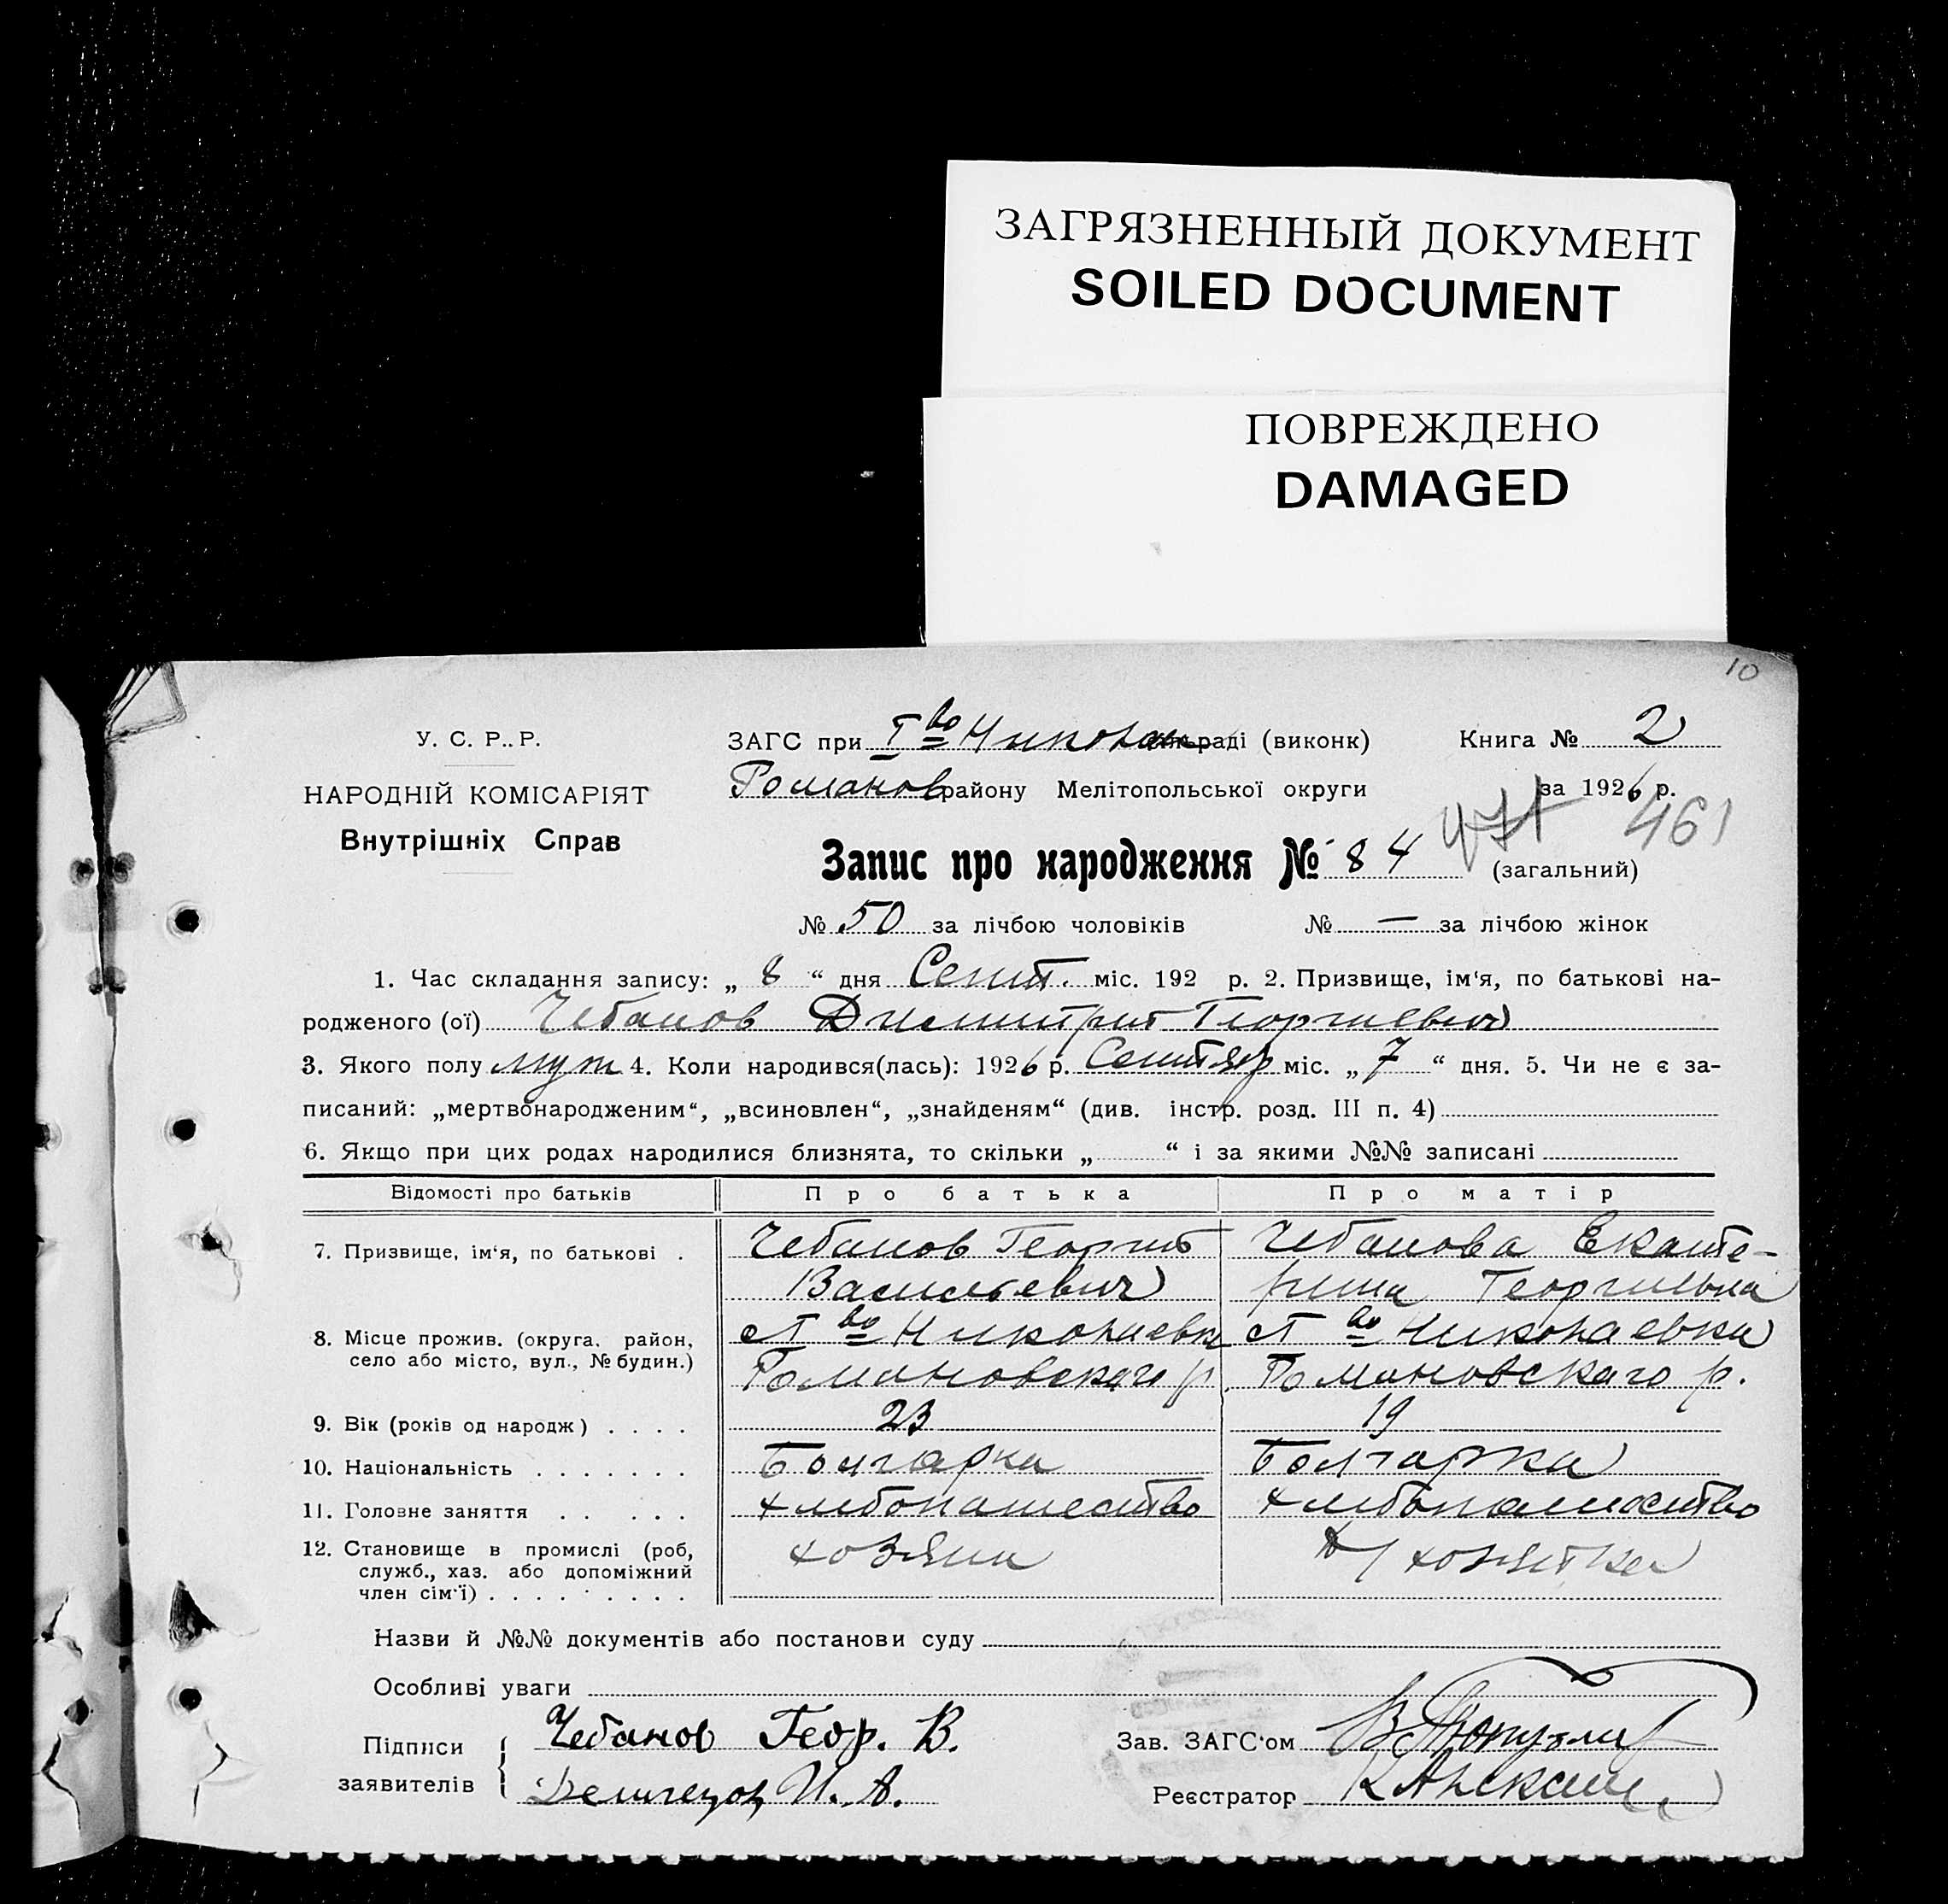 ЗАГРЯЗНЕННЫЙ ДОКУМЕНТ
SOILED DOCUMENT
ПОВРЕЖДЕНО
DAMAGED
10
У. С. Р. Р.
ЗАГС при Т во Николаев раді (виконк) Книга № 2
НАРОДНІЙ КОМІСАРІЯТ
Романов району Мелітопольської округи за 1926 р.
Внутрішніх Справ
471 461
Запис про народження № 84 (загальний)
№ 50 за лічбою чоловіків № — за лічбою жінок
1. Час складання запису: „ 8 “ дня Сент. міс. 192 р. 2. Призвище, ім‘я, по батькові на-
родженого (ої) Чебанов Димитрий Георгиевич
3. Якого полу муж 4. Коли народився(лась): 1926 р. Сентябр міс. „ 7 “ дня. 5. Чи не є за-
писаний: „мертвонародженим“, „всиновлен“, „знайденям“ (див. інстр. розд. III п. 4)
6. Якщо при цих родах народилися близнята, то скільки „ “ і за якими №№ записані
Відомості про батьків Про батька Про матір
7. Призвище, ім‘я, по батькові . Чебанов Георгий Чебанова Екате-
Васильевич рина Георгиевна
8. Місце прожив. (округа, район, с Т во Николаевка с Т во Николаевка
село або місто, вул., № будин.) Романовскаго р. Романовскаго р.
9. Вік (років од народж) . . . . 23 19
10. Національність . . . . . . . Болгарка Болгарка
11. Головне заняття . . . . . хлебопашество хлебопашество
12. Становище в промислі (роб, хозяин Д/хозяйка
служб., хаз. або допоміжний
член сім‘ї) . . . . . . . . .
Назви й №№ документів або постанови суду
Особливі уваги
Підписи Чебанов Геор. В. Зав. ЗАГС‘ом
заявителів И. А. Реєстратор